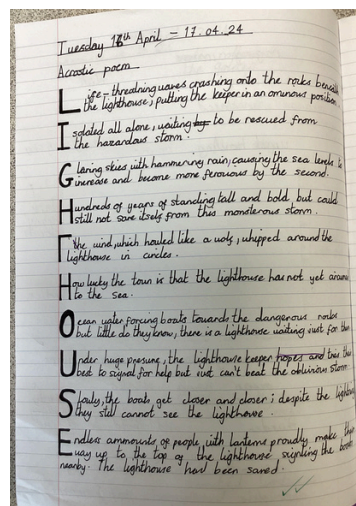 Tuesday 16th April - 17.04.24
Acrostic poem
Life-threatning waves crashing onto the rocks beneath
the lighthouse, putting the keeper in an ominous position.
Isolated all alone, waiting to be rescued from
the hazardous storm.
Glaring skies with hammering rain, causing the sea levels to
increase and become more ferocious by the second.
Hundreds of years of standing tall and bold but could
still not save itself from this monsterous storm.
The wind, which howled like a wolf, whipped around the
lighthouse in circles.
How lucky the town is that the lighthouse has not yet
to the sea.
Ocean water, forcing boats towards the dangerous rocks
but little do they know, there is a lighthouse waiting just for them
Under huge presure, the lighthouse keeper hopes and tries their
best to signal for help but just can't beat the oblivious storm
Slowly, the boats get closer and closer; despite the lighthouse
they still cannot see the lighthouse.
Endless ammounts of people, with lanterns proudly make their
way up to the top of the lighthouse signling the boats
nearby. The lighthouse had been saved.